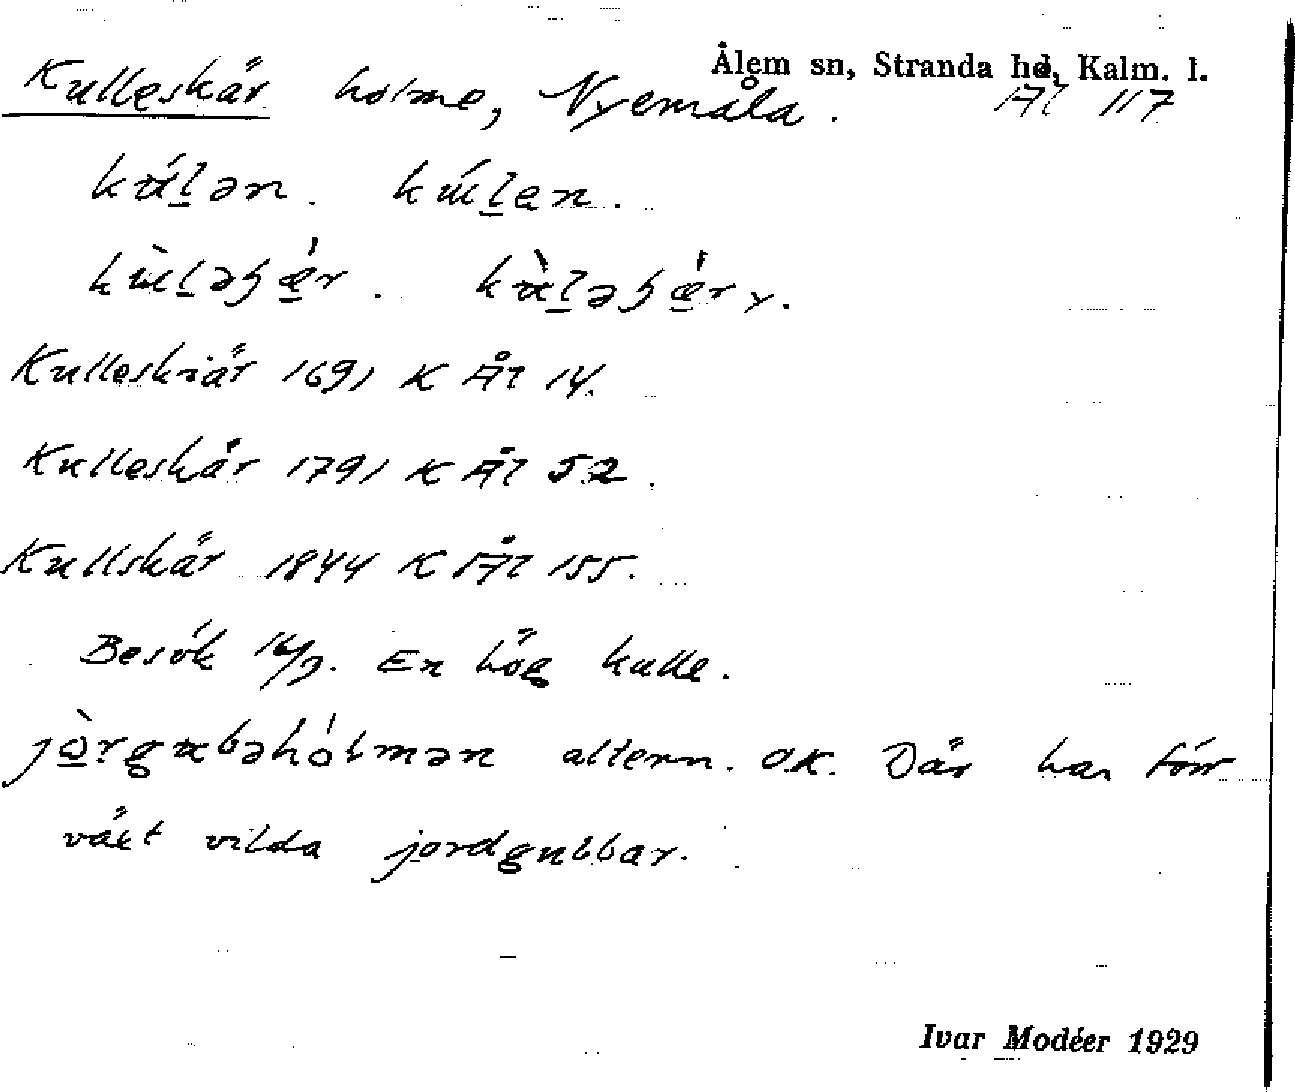 Ålem sn, Stranda hd, Kalm. l.
Kulleskär holme, Nyemåla. Ål 117
kúlən. kúlen.
kùləʂǽr. kùləʂǽr y.
Kulleskiär 1691 K Ål 14.
Kulleskär 1791 K Ål 52.
Kullskär 1844 K Ål 155.
Besök 16/7. En hög kulle.
jòrgubəhólmən altern. O.K. Där har förr
växt vilda jordgubbar.
Ivar Modéer 1929